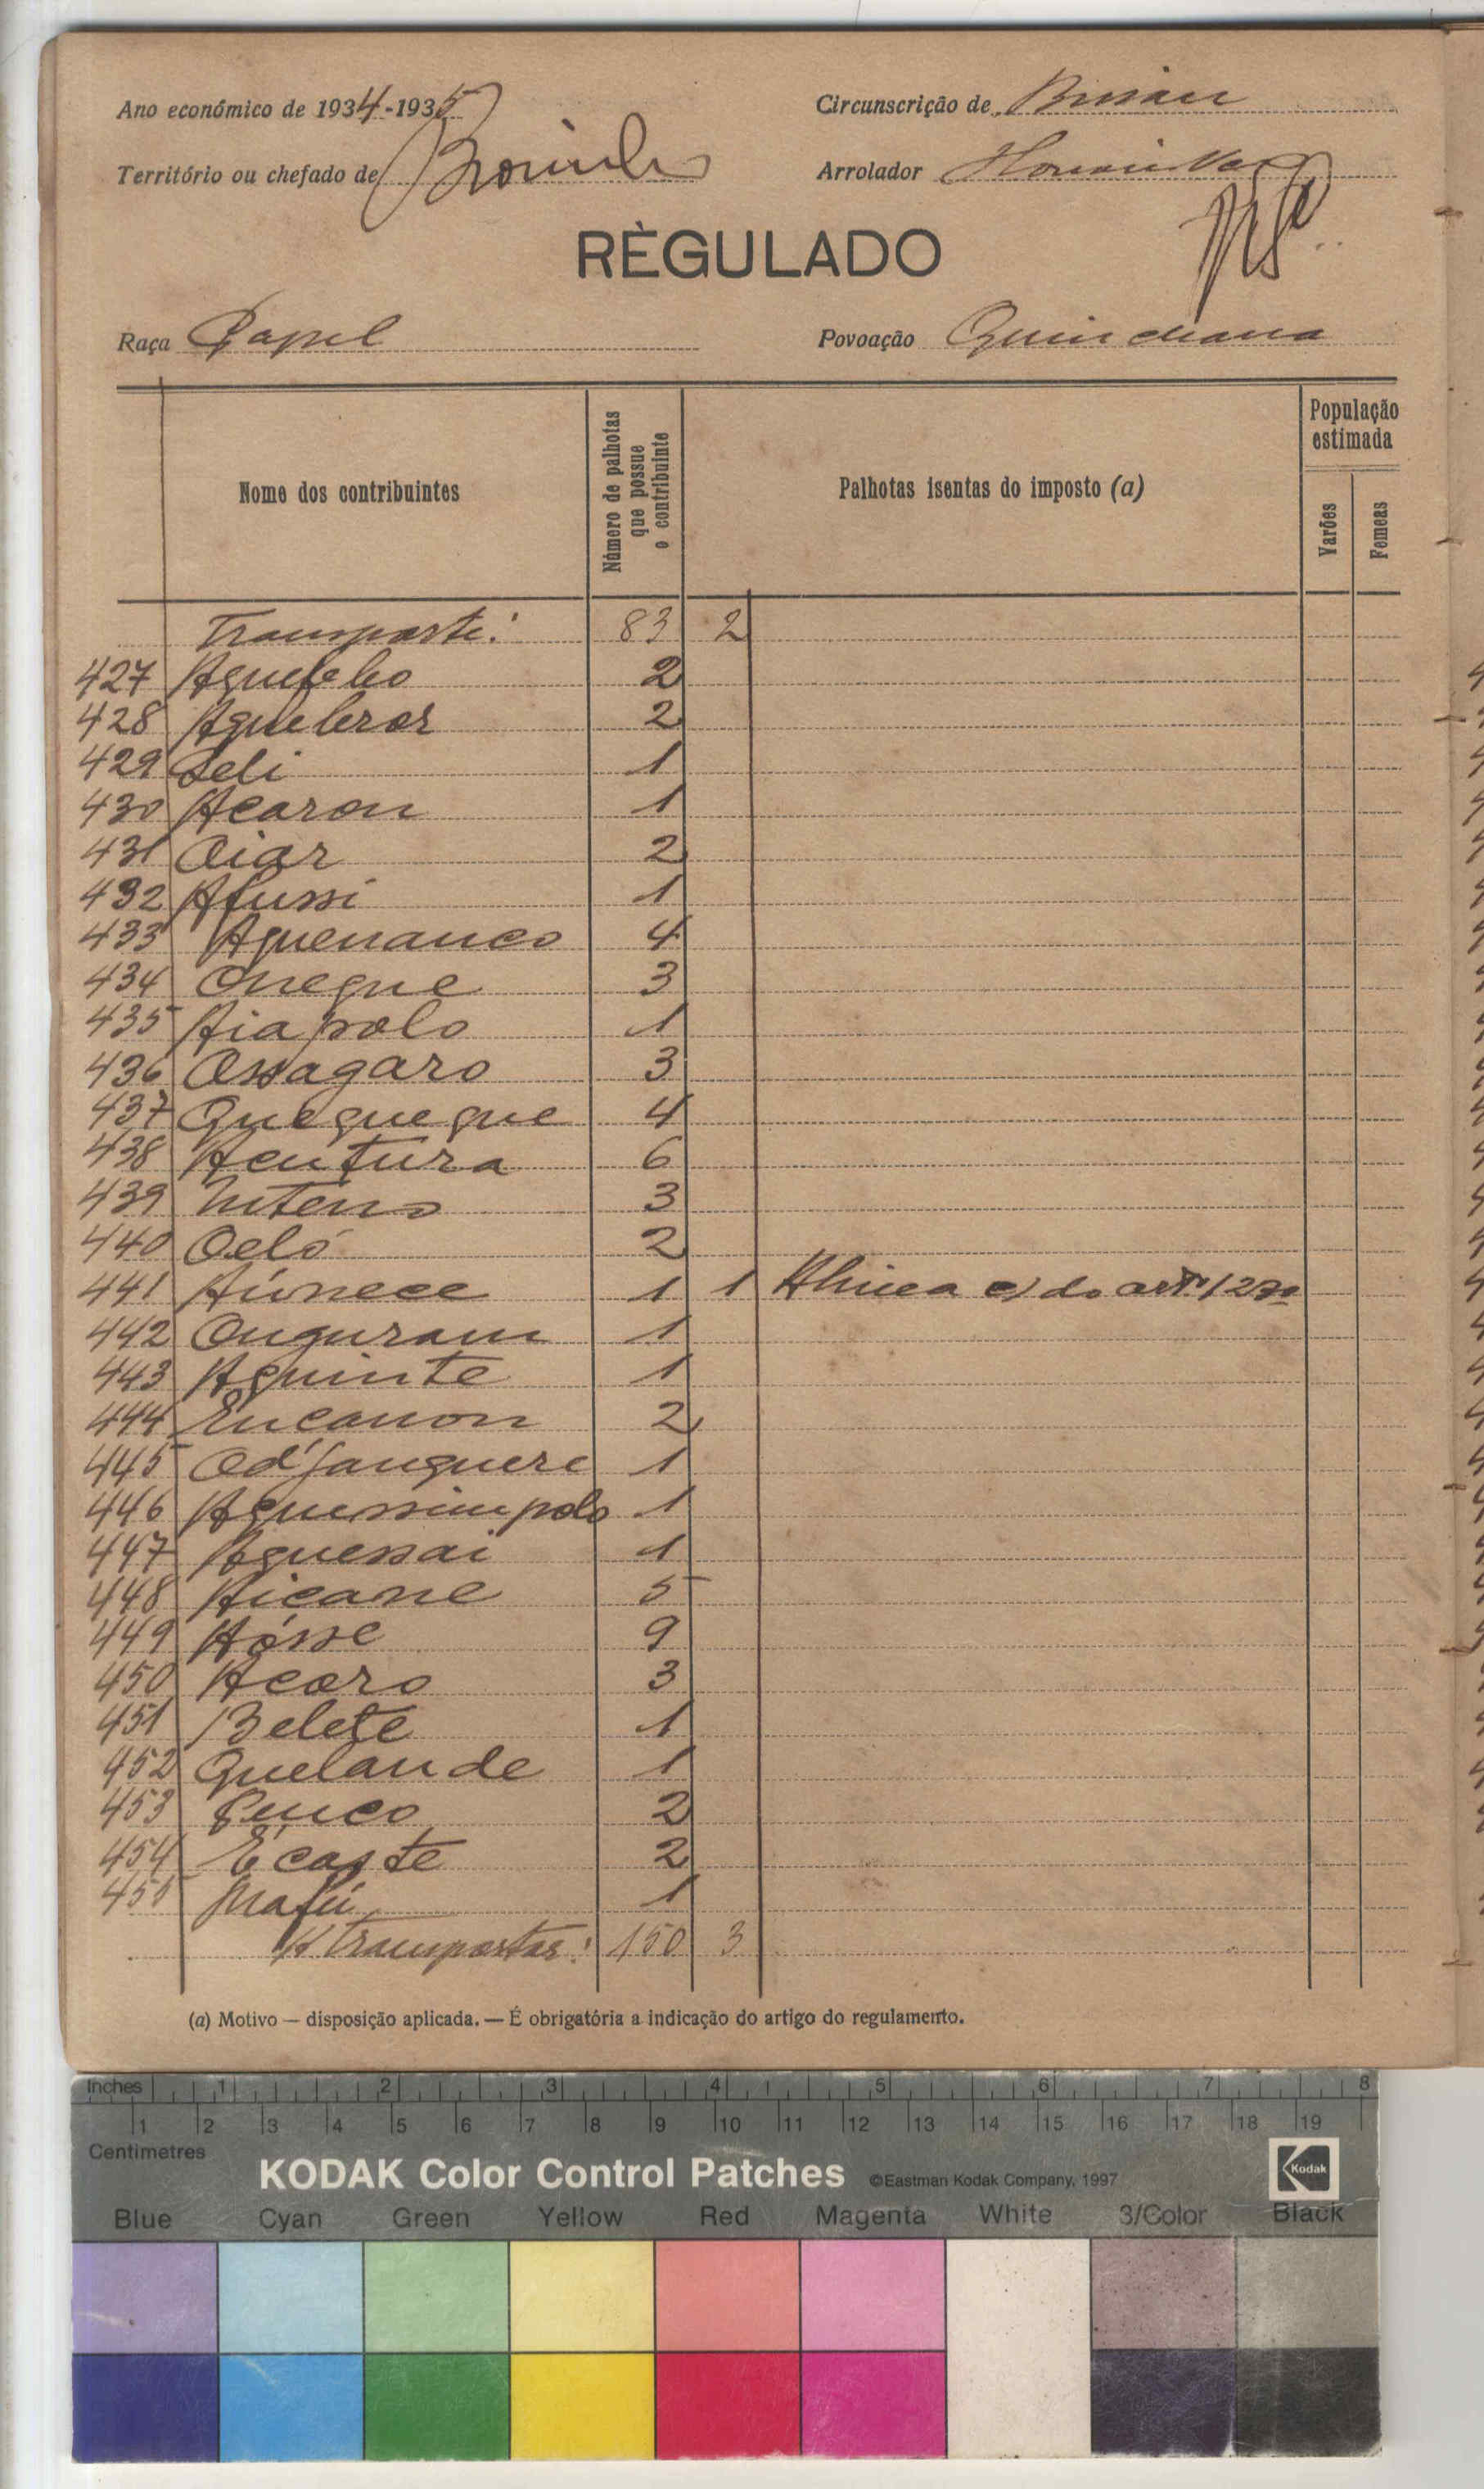 Ano económico de 1934-1935 Circunscrição de Bissau
Território ou chefado de Arrolador
RÈGULADO
Raça Papel Povoação Quinchana
Nome dos contribuintes
Número de palhotas que possue o contribuinte
Palhotas isentas do imposto (a)
População estimada
Varões
Femeas
Transporte: 83 2
427 2
428 2
429 1
430 Acaron 1
431 Oiar 2
432 Afussi 1
433 Aquenanco 4
434 Onegue 3
435 Aiapolo 1
436 Ossagaro 3
437 Quequeque 4
438 Aentura 6
439 3
440 Oeló 2
441 1 1 Alinea c) do artº 123º
442 Onguram 1
443 Aquinte 1
444 Encanon 2
445 Od'janquere 1
446 Aquessimpolo 1
447 Aquessai 1
448 Aicane 5
449 Aósse 9
450 Acoro 3
451 Belete 1
452 Quelande 1
453 2
454 2
455 Mafú 1
A transportar: 150 3
(a) Motivo — disposição aplicada. — É obrigatória a indicação do artigo do regulamento.
Inches 1 2 3 4 5 6 7 8
1 2 3 4 5 6 7 8 9 10 11 12 13 14 15 16 17 18 19
Centimetres
KODAK Color Control Patches ©Eastman Kodak Company, 1997 Kodak
Blue Cyan Green Yellow Red Magenta White 3/Color Black